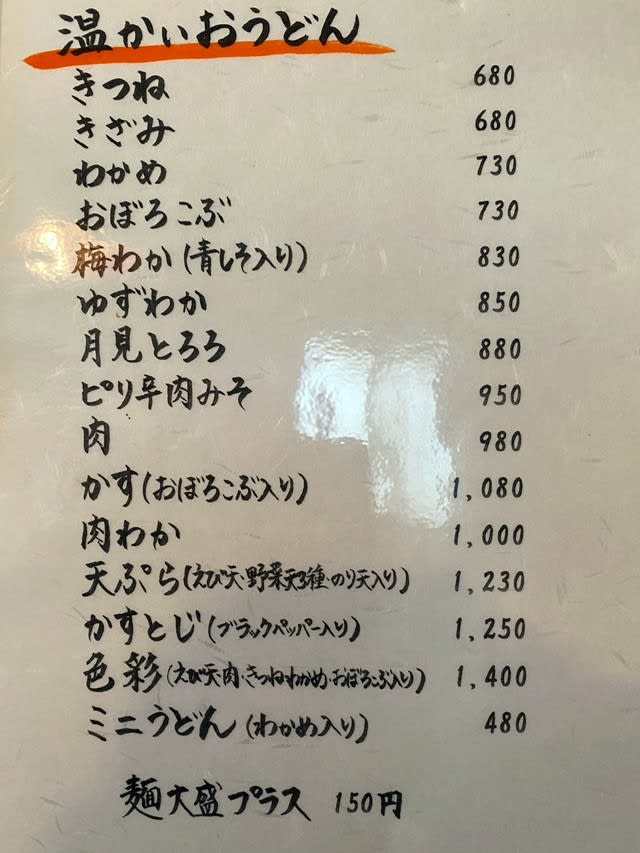 温かいおうどん
きつね 680
きざみ 680
わかめ 730
おぼろこぶ 730
梅わか(青しそ入り) 830
ゆずわか 850
月見とろろ 880
ピリ辛肉みそ 950
肉 980
かす(おぼろこぶ入り) 1,080
肉わか 1,000
天ぷら(えび天・野菜天3種・のり天入り) 1,230
かすとじ(ブラックペッパー入り) 1,250
色彩(えび天・肉・きつね・わかめ・おぼろこぶ入り) 1,400
ミニうどん(わかめ入り) 480
麺大盛プラス 150円